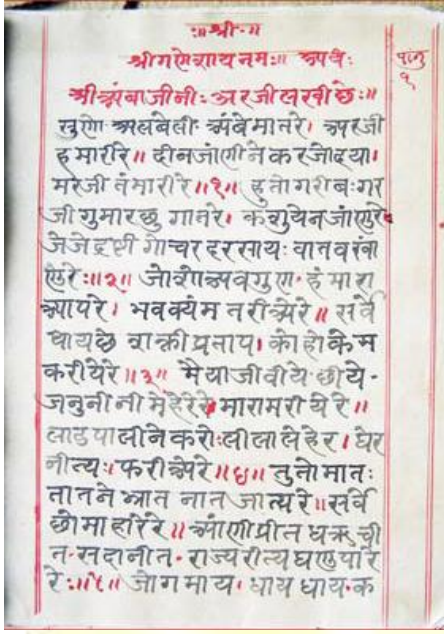 :॥श्री॰॥
श्रीगणेशाय नमः॥ अथ:
श्रीअंबाजीनी: अरजी लखी छे:॥
पानु
१
सुणो अलबेली अंबे मातरे। अरजी
हमारीरे॥ दीन जांणीने कर जोड्या।
मरजी तंमारी रे॥१॥ हुतो गरीब: गर
जी गुमार छु गातरे। कशुयेन जांणुरे
जेजे द्रष्टी गोच्चर दरसाय: वात वखा
णुरे:॥२॥ जोशो अवगुण॰ हंमारा
आपरे। भव क्यंम तरीअेरे॥ सर्वे
थाय छे शक्तीप्रताप। कोहो केम
करीयेरे॥३॥ मैया जीवीये छीये॰
जनुनीनी मेहेरे मारा मरीयेरे॥
लाड पालीने करो: लीला लेहेर। घेर
नीत्य: फरीअेरे॥४॥ तुतो मात:
तातने भ्रात नात जात्यरे॥ सर्वे
छो माहरिरे॥ आंणी प्रीत धरू ची
त॰ सदानीत॰ राज्यरीत्य घणु पारि
रे:॥५॥ जोगमाय। धाय धाय॰ क